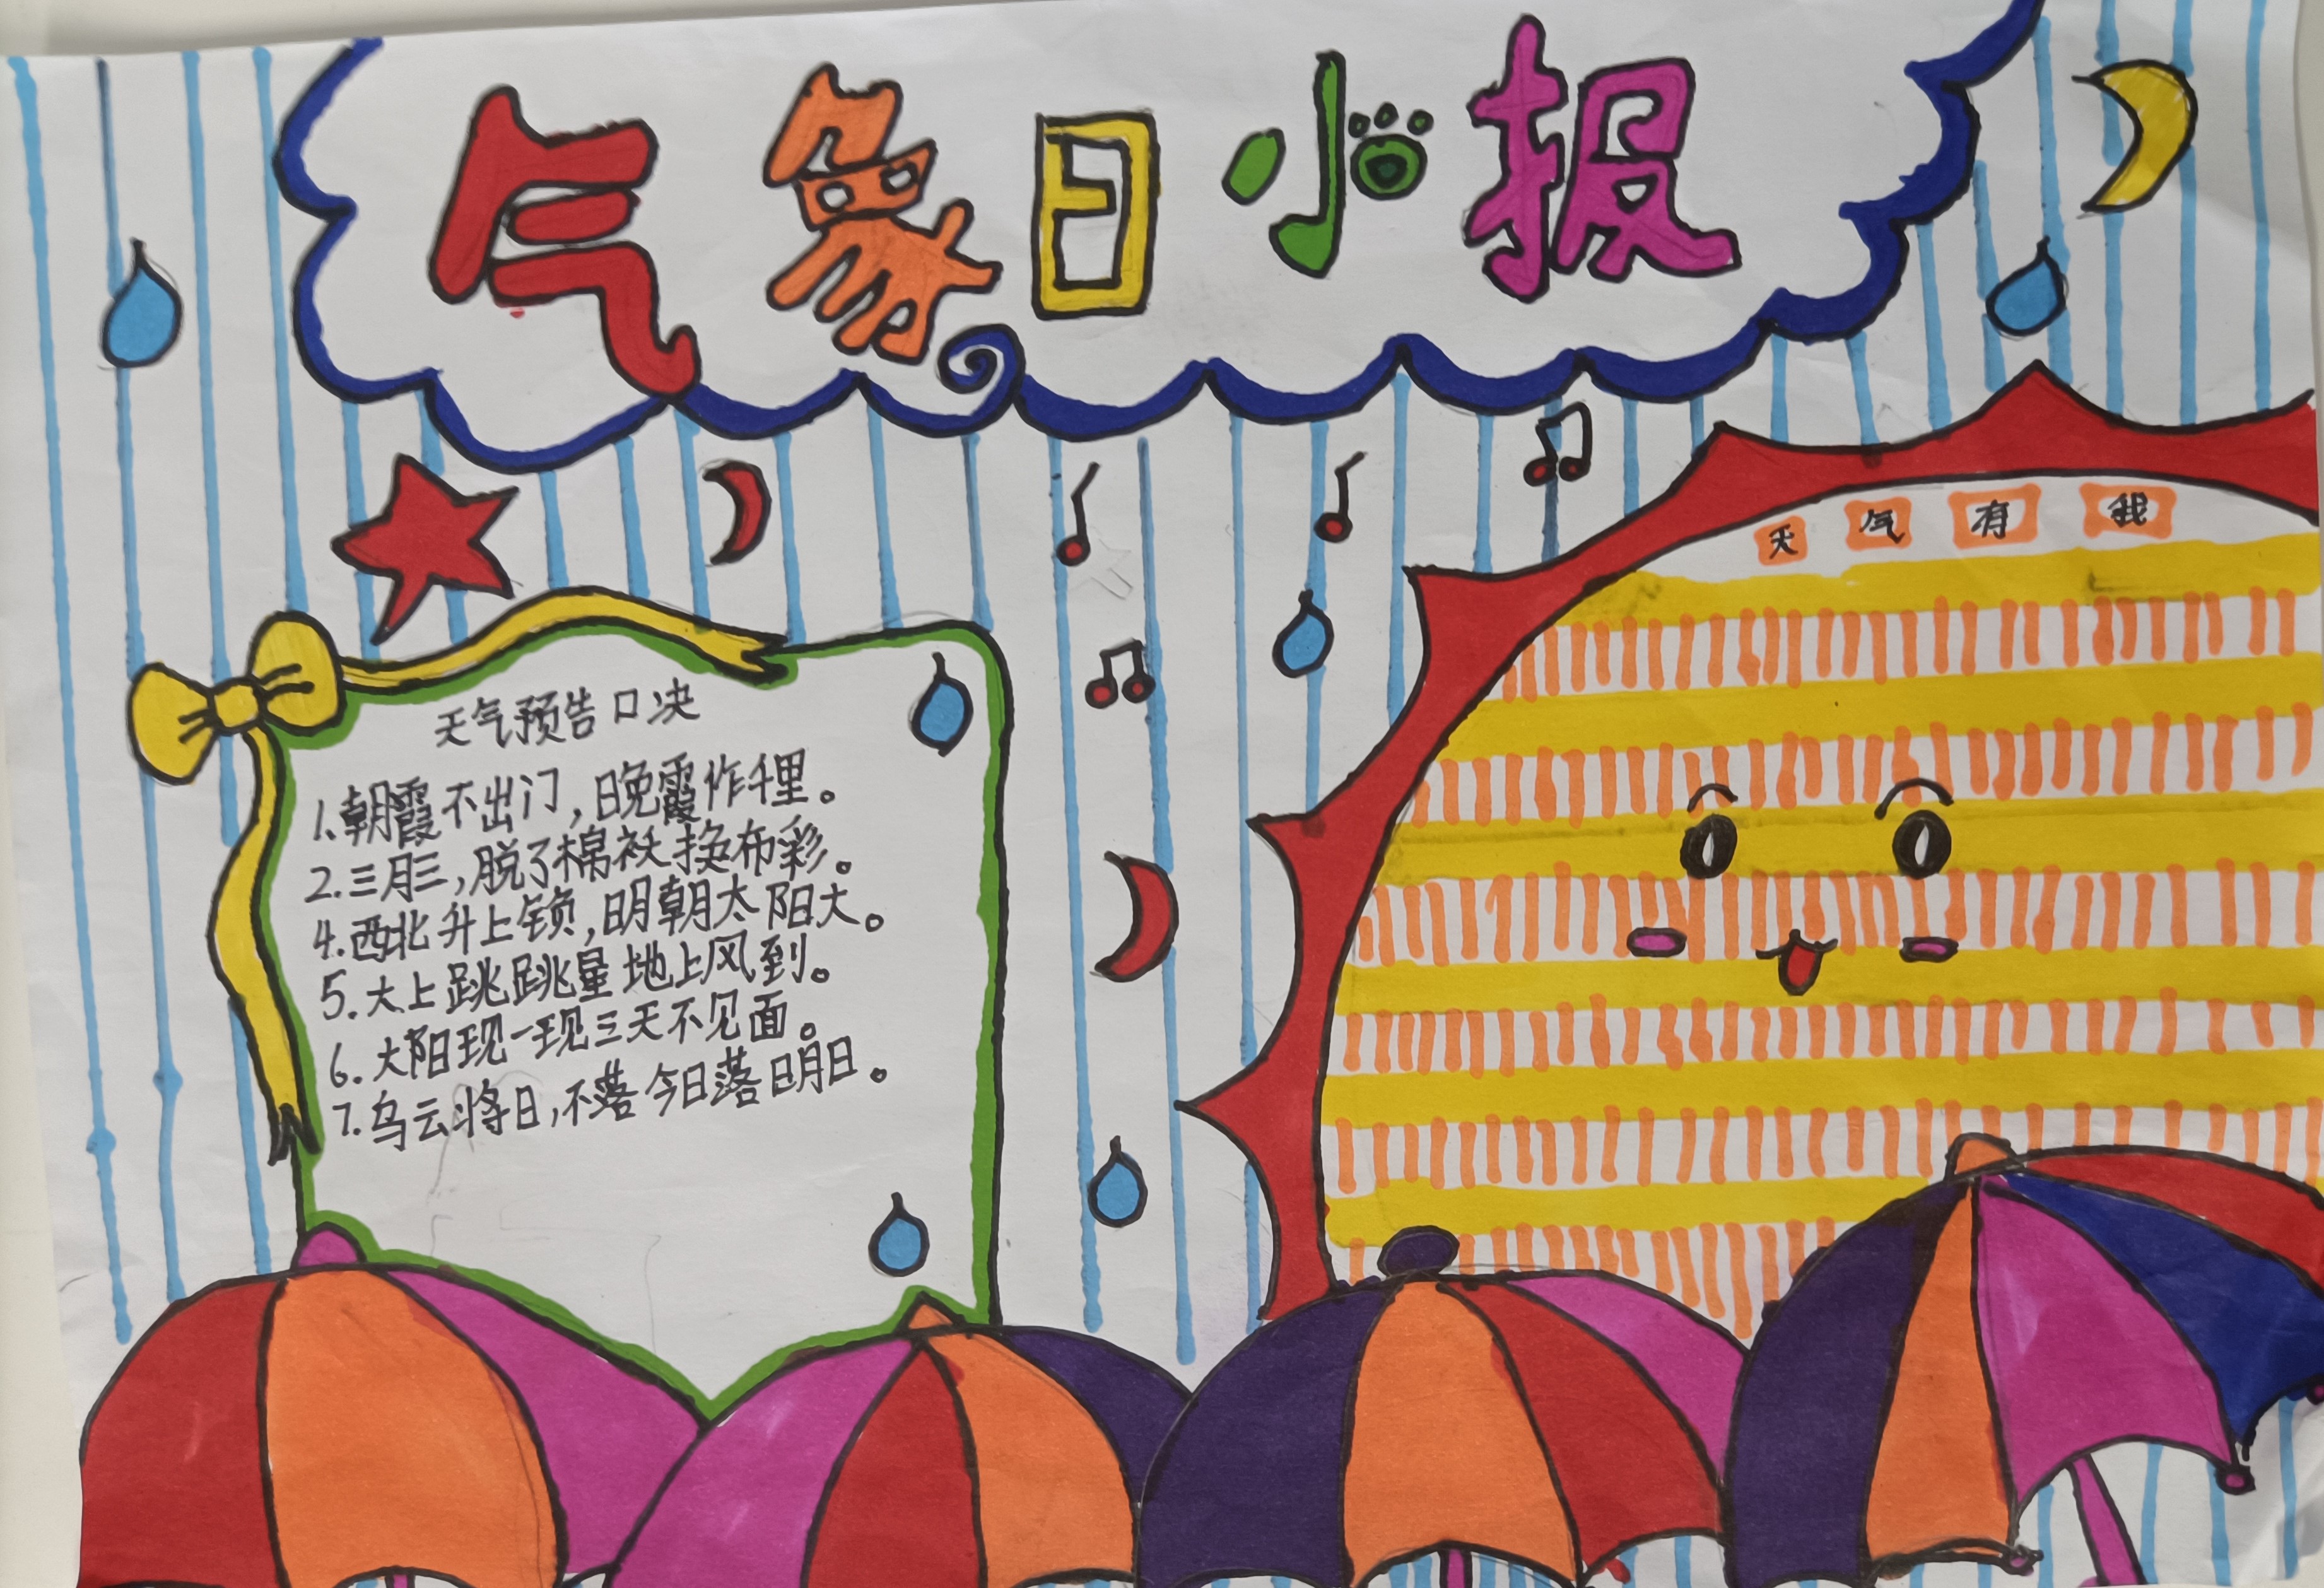 气象日小报
天气有我
天气预告口决
1.朝霞不出门,日晚霞作千里。
2.三月三,脱了棉袄换布彩。
4.西北升上锁,明朝太阳大。
5.大上跳跳量地上风到。
6.大阳现一现三天不见面。
7.乌云将日,不落今日落明日。